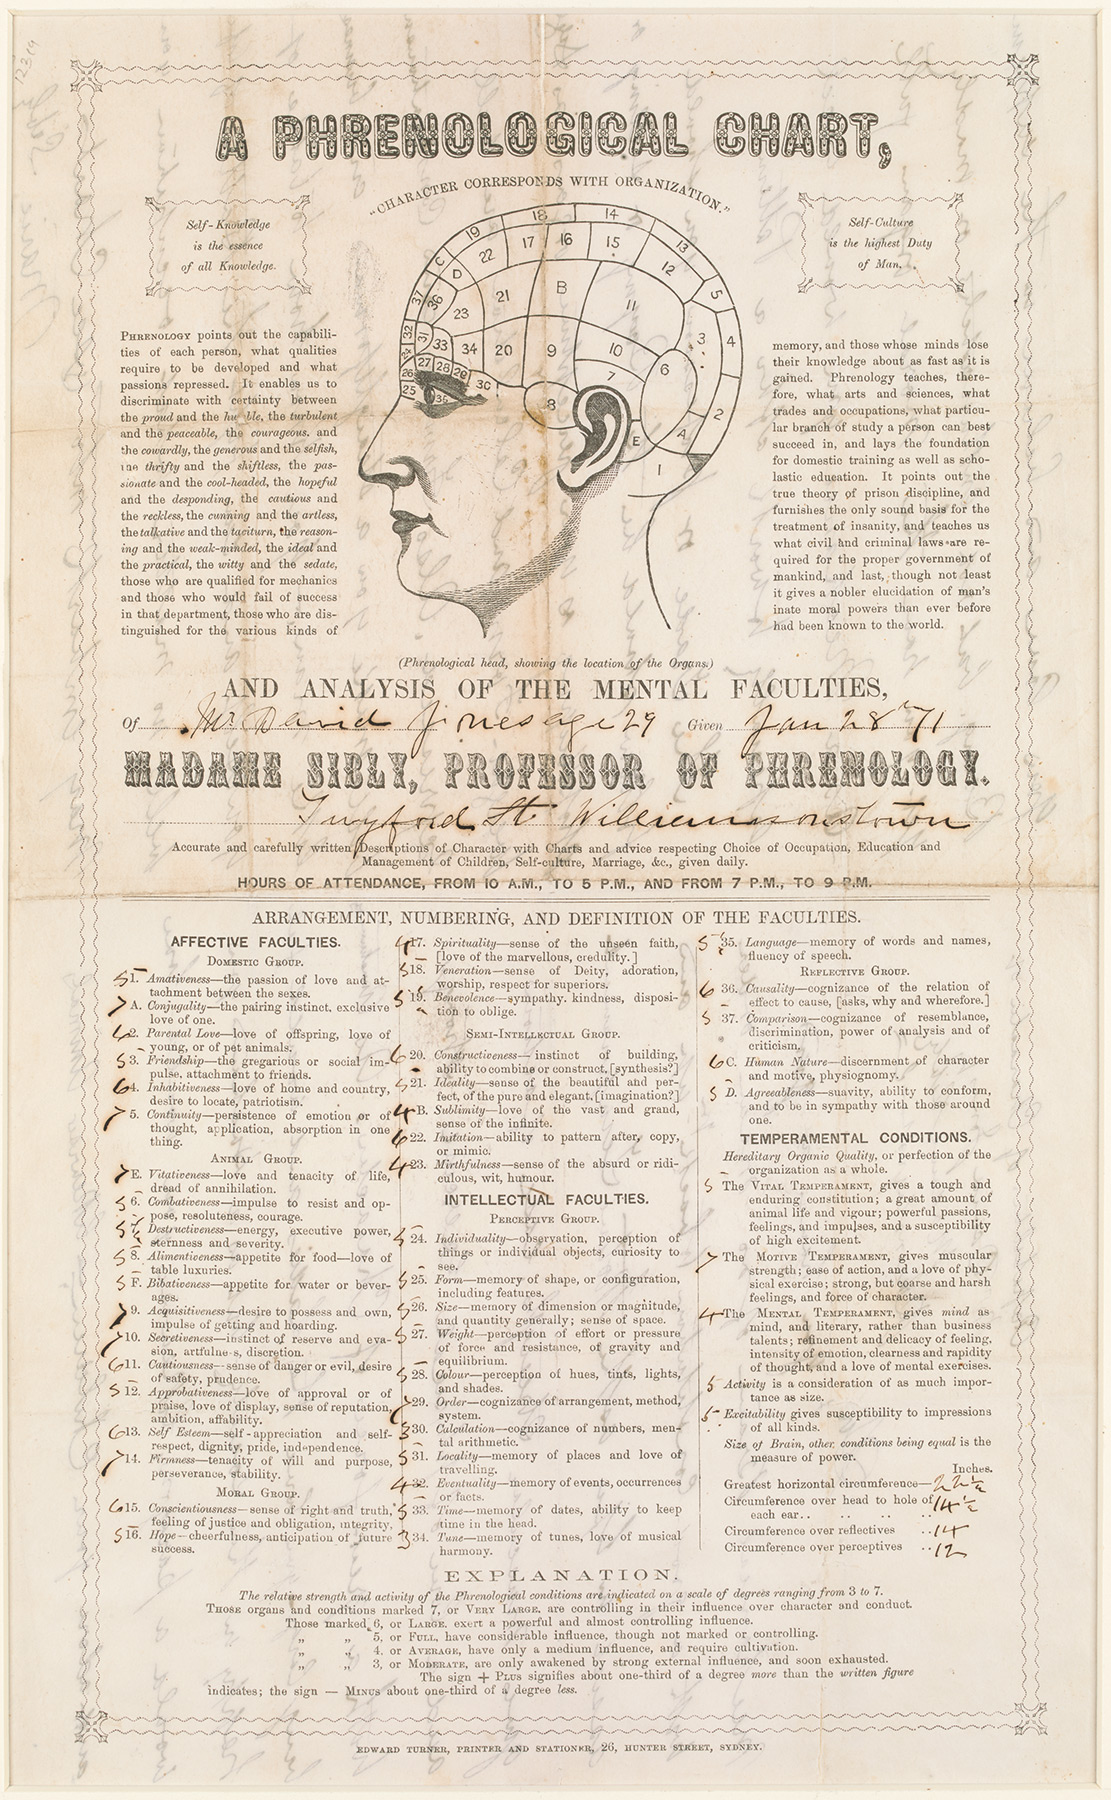 A PHRENOLOGICAL CHART,
"CHARACTER CORRESPONDS WITH ORGANIZATION."
Self-Knowledge
is the essence
of all Knowledge.
Self-Culture
is the highest Duty
of Man.
PHRENOLOGY points out the capabili-
ties of each person, what qualities
require to be developed and what
passions repressed. It enables us to
discriminate with certainty between
the proud and the humble, the turbulent
and the peaceable, the courageous. and
the cowardly, the generous and the selfish,
the thrifty and the shiftless, the pas-
sionate and the cool-headed, the hopeful
and the desponding, the cautious and
the reckless, the cunning and the artless,
the talkative and the taciturn, the reason-
ing and the weak-minded, the ideal and
the practical, the witty and the sedate,
those who are qualified for mechanics
and those who would fail of success
in that department, those who are dis-
tinguished for the various kinds of
memory, and those whose minds lose
their knowledge about as fast as it is
gained. Phrenology teaches, there-
fore, what arts and sciences, what
trades and occupations, what particu-
lar branch of study a person can best
succeed in, and lays the foundation
for domestic training as well as scho-
lastic education. It points out the
true theory of prison discipline, and
furnishes the only sound basis for the
treatment of insanity, and teaches us
what civil and criminal laws are re-
quired for the proper government of
mankind, and last, though not least
it gives a nobler elucidation of man's
inate moral powers than ever before
had been known to the world.
18 14
19 17 16 15 13
C D 22 12 5
37 36 23 21 B 11
32 31 33 34 20 9 10 3 4
24 27 28 29 30 7 6
26 25 35 8 2
E A 1
(Phrenological head, showing the location of the Organs.)
AND ANALYSIS OF THE MENTAL FACULTIES,
Of Mr David Jones age 29 Given Jan 28th 71
MADAME SIBLY, PROFESSOR OF PHRENOLOGY.
Twyford St Williamstown
Accurate and carefully written Descriptions of Character with Charts and advice respecting Choice of Occupation, Education and
Management of Children, Self-culture, Marriage, &c., given daily.
HOURS OF ATTENDANCE, FROM 10 A.M., TO 5 P.M., AND FROM 7 P.M., TO 9 P.M.
ARRANGEMENT, NUMBERING, AND DEFINITION OF THE FACULTIES.
AFFECTIVE FACULTIES.
DOMESTIC GROUP.
5 1. Amativeness—the passion of love and at-
tachment between the sexes.
7 A. Conjugality—the pairing instinct, exclusive
love of one.
6 2. Parental Love—love of offspring, love of
young, or of pet animals.
5 3. Friendship—the gregarious or social im-
pulse, attachment to friends.
6 4. Inhabitiveness—love of home and country,
desire to locate, patriotism.
7 5. Continuity—persistence of emotion or of
thought, application, absorption in one
thing.
ANIMAL GROUP.
7 E. Vitativeness—love and tenacity of life,
dread of annihilation.
5 6. Combativeness—impulse to resist and op-
pose, resoluteness, courage.
5 7. Destructiveness—energy, executive power,
sternness and severity.
5 8. Alimentiveness—appetite for food—love of
table luxuries.
5 F. Bibativeness—appetite for water or bever-
ages.
7 9. Acquisitiveness—desire to possess and own,
impulse of getting and hoarding.
7 10. Secretiveness—instinct of reserve and eva-
sion, artfulness, discretion.
6 11. Cautiousness—sense of danger or evil, desire
of safety, prudence.
5 12. Approbativeness—love of approval or of
praise, love of display, sense of reputation,
ambition, affability.
6 13. Self Esteem—self-appreciation and self-
respect, dignity, pride, independence.
7 14. Firmness—tenacity of will and purpose,
perseverance, stability.
MORAL GROUP.
6 15. Conscientiousness—sense of right and truth,
feeling of justice and obligation, integrity.
5 16. Hope—cheerfulness, anticipation of future
success.
4 17. Spirituality—sense of the unseen faith,
[love of the marvellous, credulity.]
5 18. Veneration—sense of Deity, adoration,
worship, respect for superiors.
5 19. Benevolence—sympathy. kindness, disposi-
tion to oblige.
SEMI-INTELLECTUAL GROUP.
6 20. Constructiveness—instinct of building,
ability to combine or construct, [synthesis?]
5 21. Ideality—sense of the beautiful and per-
fect, of the pure and elegant. [imagination?]
4 B. Sublimity—love of the vast and grand,
sense of the infinite.
6 22. Imitation—ability to pattern after, copy,
or mimic.
4 23. Mirthfulness—sense of the absurd or ridi-
culous, wit, humour.
INTELLECTUAL FACULTIES.
PERCEPTIVE GROUP.
5 24. Individuality—observation, perception of
things or individual objects, curiosity to
see.
5 25. Form—memory of shape, or configuration,
including features.
5 26. Size—memory of dimension or magnitude,
and quantity generally; sense of space.
5 27. Weight—perception of effort or pressure
of force and resistance, of gravity and
equilibrium.
5 28. Colour—perception of hues, tints, lights,
and shades.
7 29. Order—cognizance of arrangement, method,
system.
5 30. Calculation—cognizance of numbers, men-
tal arithmetic.
5 31. Locality—memory of places and love of
travelling.
4 32. Eventuality—memory of events, occurrences
or facts.
5 33. Time—memory of dates, ability to keep
time in the head.
3 34. Tune—memory of tunes, love of musical
harmony.
5 35. Language—memory of words and names,
fluency of speech.
REFLECTIVE GROUP.
6 36. Causality—cognizance of the relation of
effect to cause, [asks, why and wherefore.]
5 37. Comparison—cognizance of resemblance,
discrimination, power of analysis and of
criticism.
6 C. Human Nature—discernment of character
and motive, physiognomy.
5 D. Agreeableness—suavity, ability to conform,
and to be in sympathy with those around
one.
TEMPERAMENTAL CONDITIONS.
Hereditary Organic Quality, or perfection of the
organization as a whole.
5 The VITAL TEMPERAMENT, gives a tough and
enduring constitution; a great amount of
animal life and vigour; powerful passions,
feelings, and impulses, and a susceptibility
of high excitement.
7 The MOTIVE TEMPERAMENT, gives muscular
strength; ease of action, and a love of phy-
sical exercise; strong, but coarse and harsh
feelings, and force of character.
4 The MENTAL TEMPERAMENT, gives mind as
mind, and literary, rather than business
talents; refinement and delicacy of feeling,
intensity of emotion, clearness and rapidity
of thought, and a love of mental exercises.
5 Activity is a consideration of as much impor-
tance as size.
5 Excitability gives susceptibility to impressions
of all kinds.
Size of Brain, other conditions being equal is the
measure of power.
Inches.
Greatest horizontal circumference—22 1/2
Circumference over head to hole of 14 1/2
each ear.. .. .. ..
Circumference over reflectives ..14
Circumference over perceptives ..12
EXPLANATION.
The relative strength and activity of the Phrenological conditions are indicated on a scale of degrees ranging from 3 to 7.
THOSE organs and conditions marked 7, or VERY LARGE, are controlling in their influence over character and conduct.
Those marked 6, or LARGE, exert a powerful and almost controlling influence.
„ „ 5, or FULL, have considerable influence, though not marked or controlling.
„ „ 4, or AVERAGE, have only a medium influence, and require cultivation.
„ „ 3, or MODERATE, are only awakened by strong external influence, and soon exhausted.
The sign + PLUS signifies about one-third of a degree more than the written figure
indicates; the sign — MINUS about one-third of a degree less.
EDWARD TURNER, PRINTER AND STATIONER, 26, HUNTER STREET, SYDNEY.